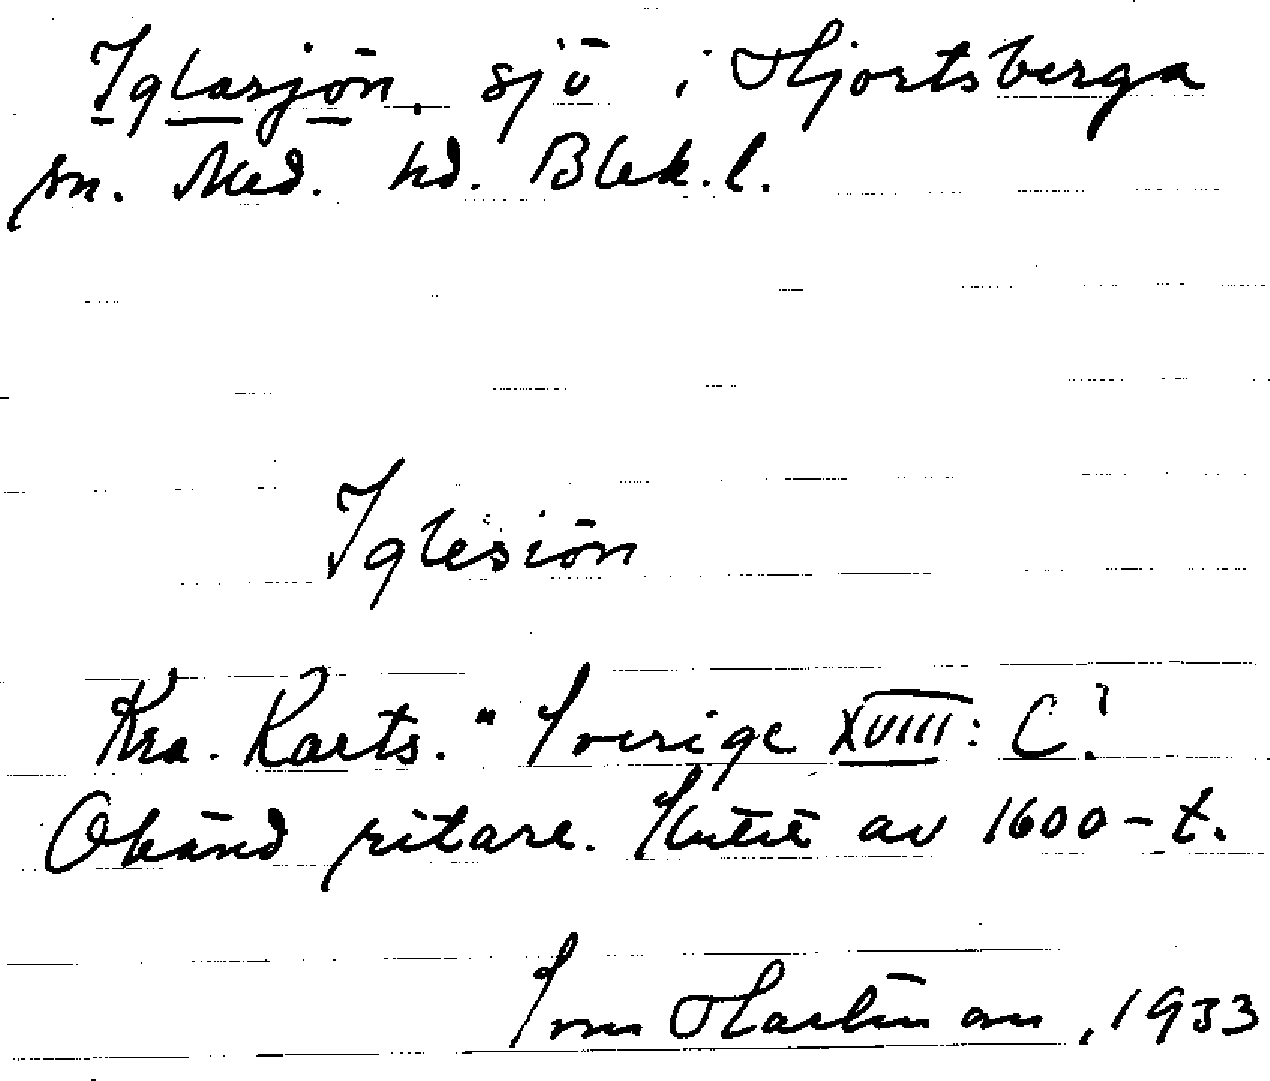 Iglasjön, sjö i Hjortsberga
sn. Med. hd. Blek.l.
Iglesiön
Kra. Karts. "Sverige XVIIII: C?
Okänd ritare. Slutet av 1600-t.
Sven Hartman, 1933